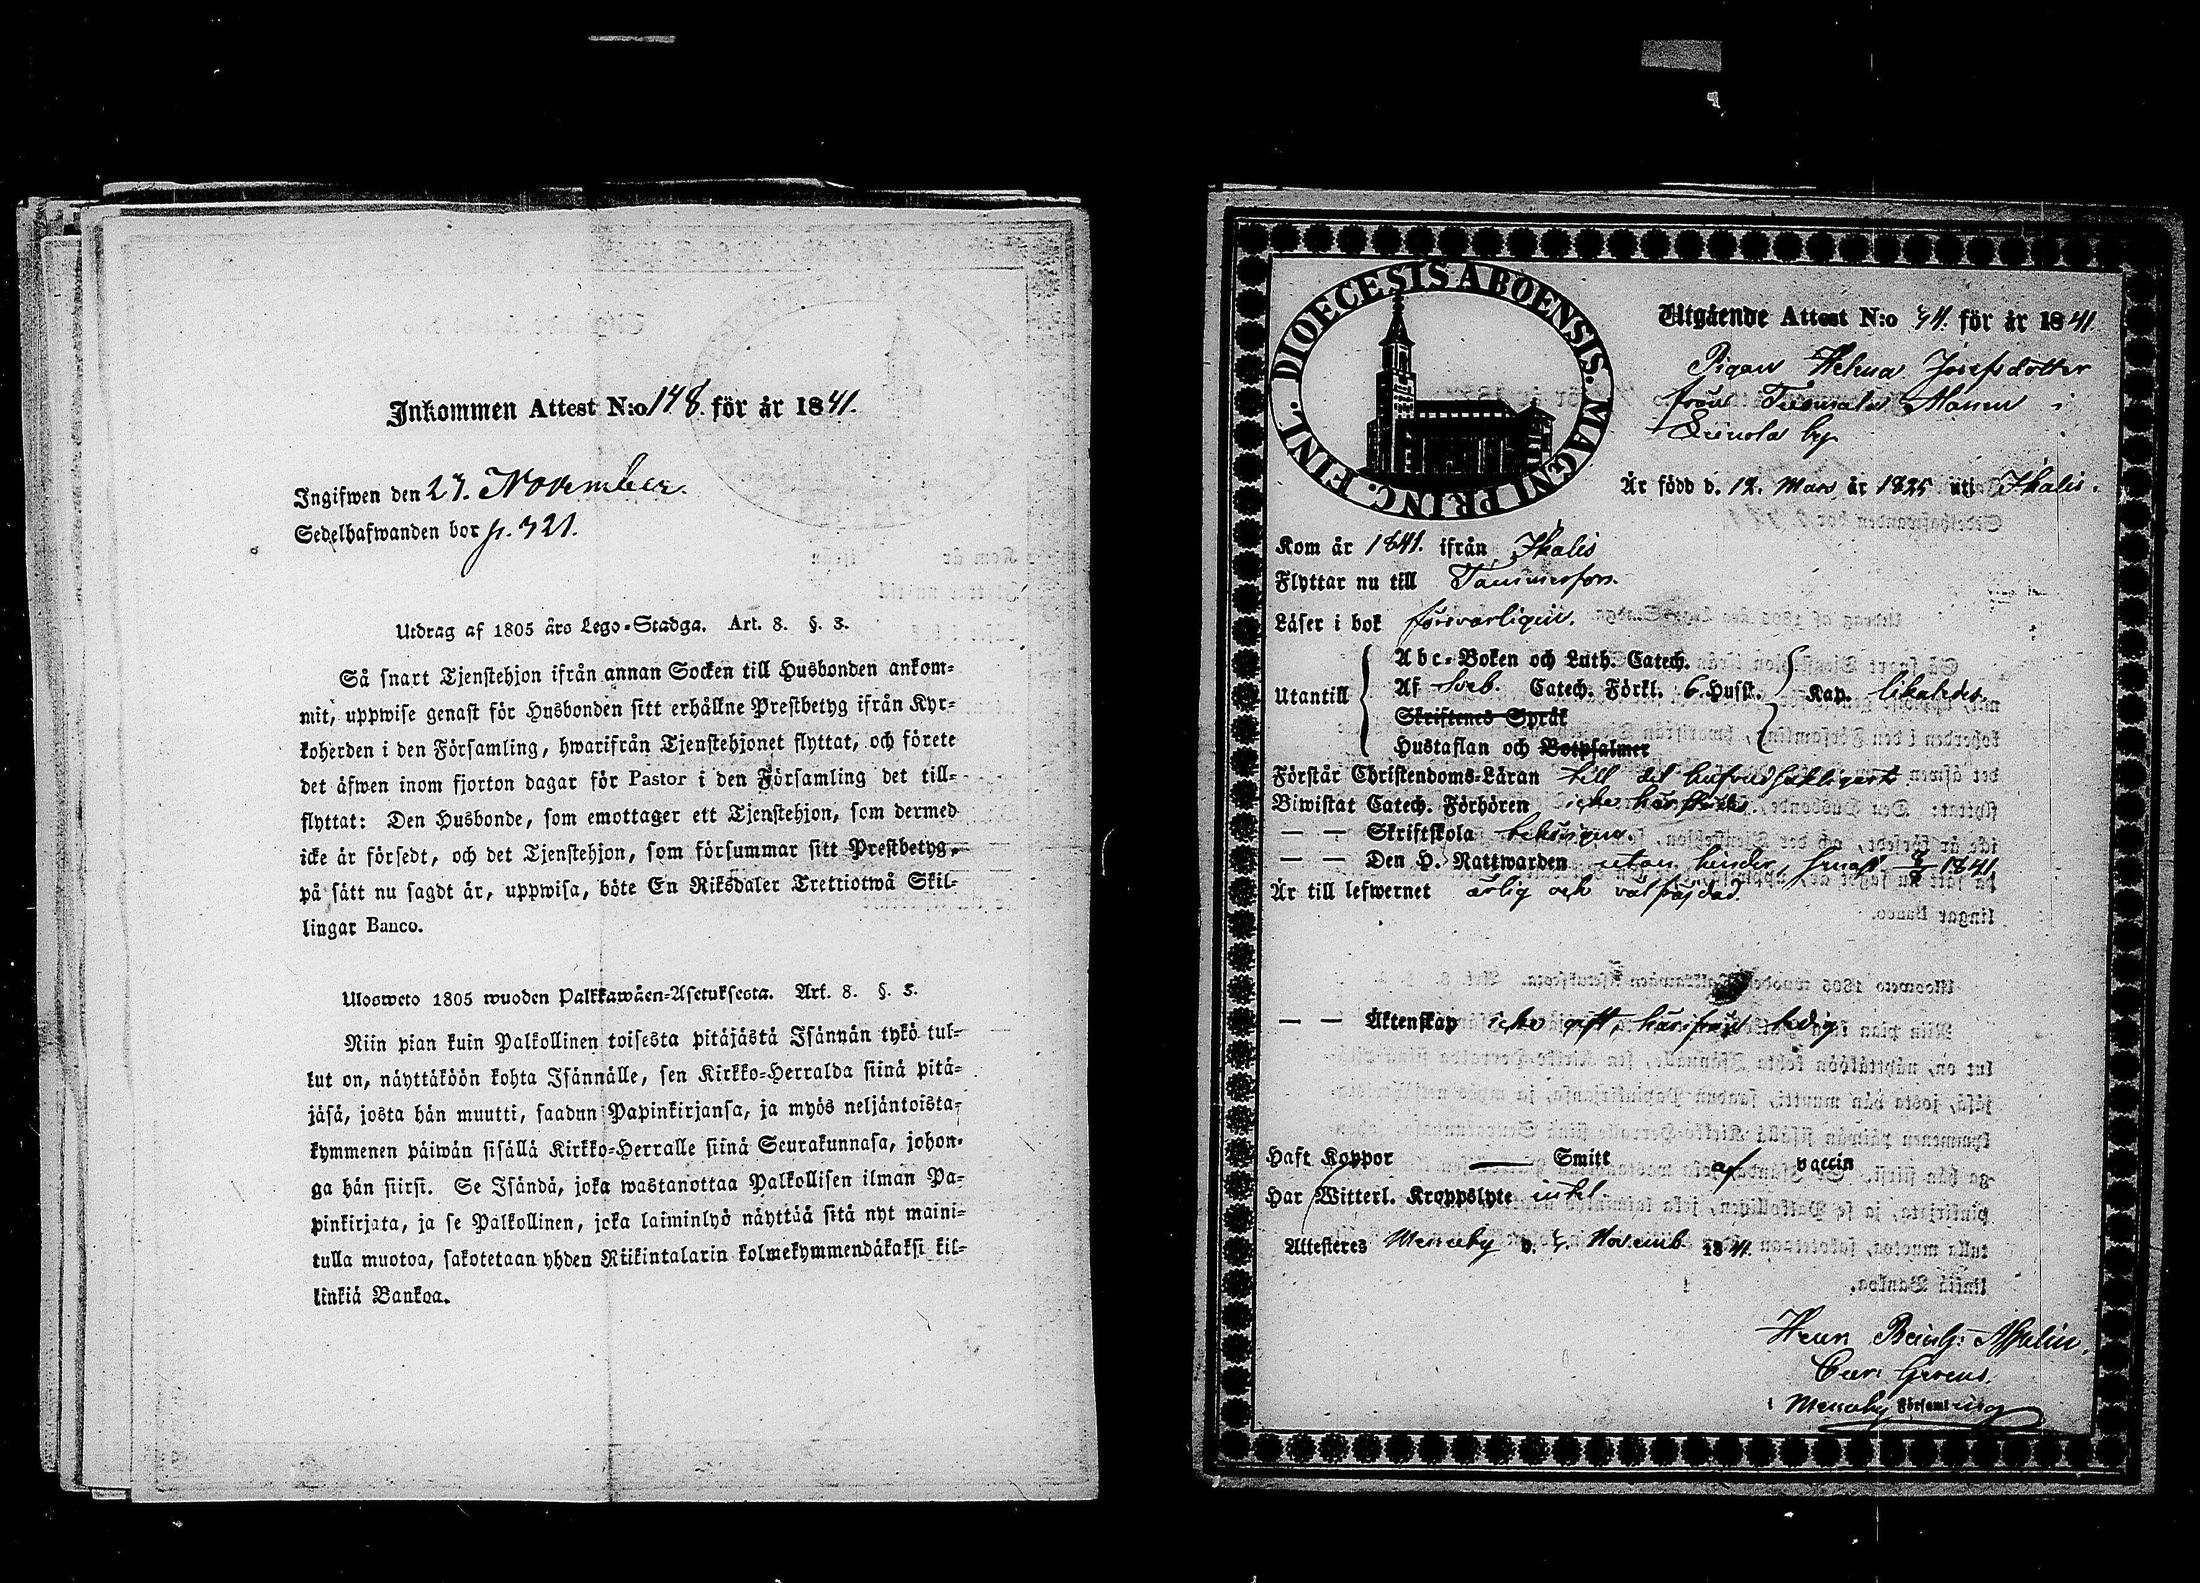 Inkommen Attest N:o 148. för år 1841.
Ingifwen den 27. November.
Sedelhafwanden bor p. 321.
Utdrag af 1805 års Lego-Stadga. Art. 8. §. 3.
Så snart Tjenstehjon ifrån annan Socken till Husbonden ankom-
mit, uppwise genast för Husbonden sitt erhållne Prestbetyg ifrån Kyr-
koherden i den Församling, hwarifrån Tjenstehjonet flyttat, och förete
det äfwen inom fjorton dagar för Pastor i den Församling det till-
flyttat: Den Husbonde, som emottager ett Tjenstehjon, som dermed
icke är försedt, och det Tjenstehjon, som försummar sitt Prestbetyg,
på sätt nu sagdt är, uppwisa, böte En Riksdaler Trettiotwå Skil-
lingar Banco.
Ulosweto 1805 wuoden Palkkawäen-Asetuksesta. Art. 8. §. 3.
Niin pian kuin Palkollinen toisesta pitäjästä Isännän tykö tul-
lut on, näyttäköön kohta Isännälle, sen Kirkko-Herralda siinä pitä-
jäsä, josta hän muutti, saadun Papinkirjansa, ja myös neljäntoista-
kymmenen päiwän sisällä Kirkko-Herralle siinä Seurakunnasa, johon-
ga hän siirsi. Se Isändä, joka wastanottaa Palkollisen ilman Pa-
pinkirjata, ja se Palkollinen, joka laiminlyö näyttää sitä nyt maini-
tulla muotoa, sakotetaan yhden Riikintalarin kolmekymmendäkaksi kil-
linkiä Bankoa.
DIOECESIS ABOENSIS. MAGNI PRINC. FINL.
Utgående Attest N:o 34. för år 1841.
Pigan Helena Josefsdotter
från
by
Är född d. 12. Mars år 1825 uti Ikalis.
Kom år 1841. ifrån Ikalis
Flyttar nu till Tammerfors.
Läser i bok försvarligen.
Abc-Boken och Luth. Catech.
Utantill Af Sveb. Catech. Förkl. 6. Husst. Kap. likaledes.
Skriftenes Språk
Hustaflan och Botpsalmer
Förstår Christendoms-Läran till det hufvudsakligaste
Biwistat Catech. Förhören icke härstädes.
— — Skriftskola behörigen.
— — Den H. Nattwarden utan hinder, senast 1841.
Är till lefwernet ärlig och välfräjdad.
— — Äktenskap icke gift, härifrån ledig
Haft Koppor — Smitt af vaccin
Har Witterl. Kroppslyte intet
Attesteres Messuby d. Novemb. 1841.
Messuby Församling